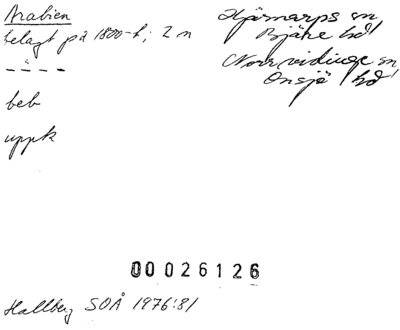 Arabien
belagt på 1800-t; 2 n
- - " - -
beb
uppk
Hjärnarps sn
Bjäre hd
Norrvidinge sn
Onsjö hd
00026126
Hallberg SOÅ 1976:81